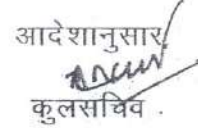 आदेशानुसार
कुलसचिव .